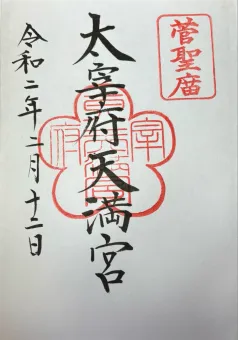 菅聖庿
太宰府天満宮
令和二年二月十二日